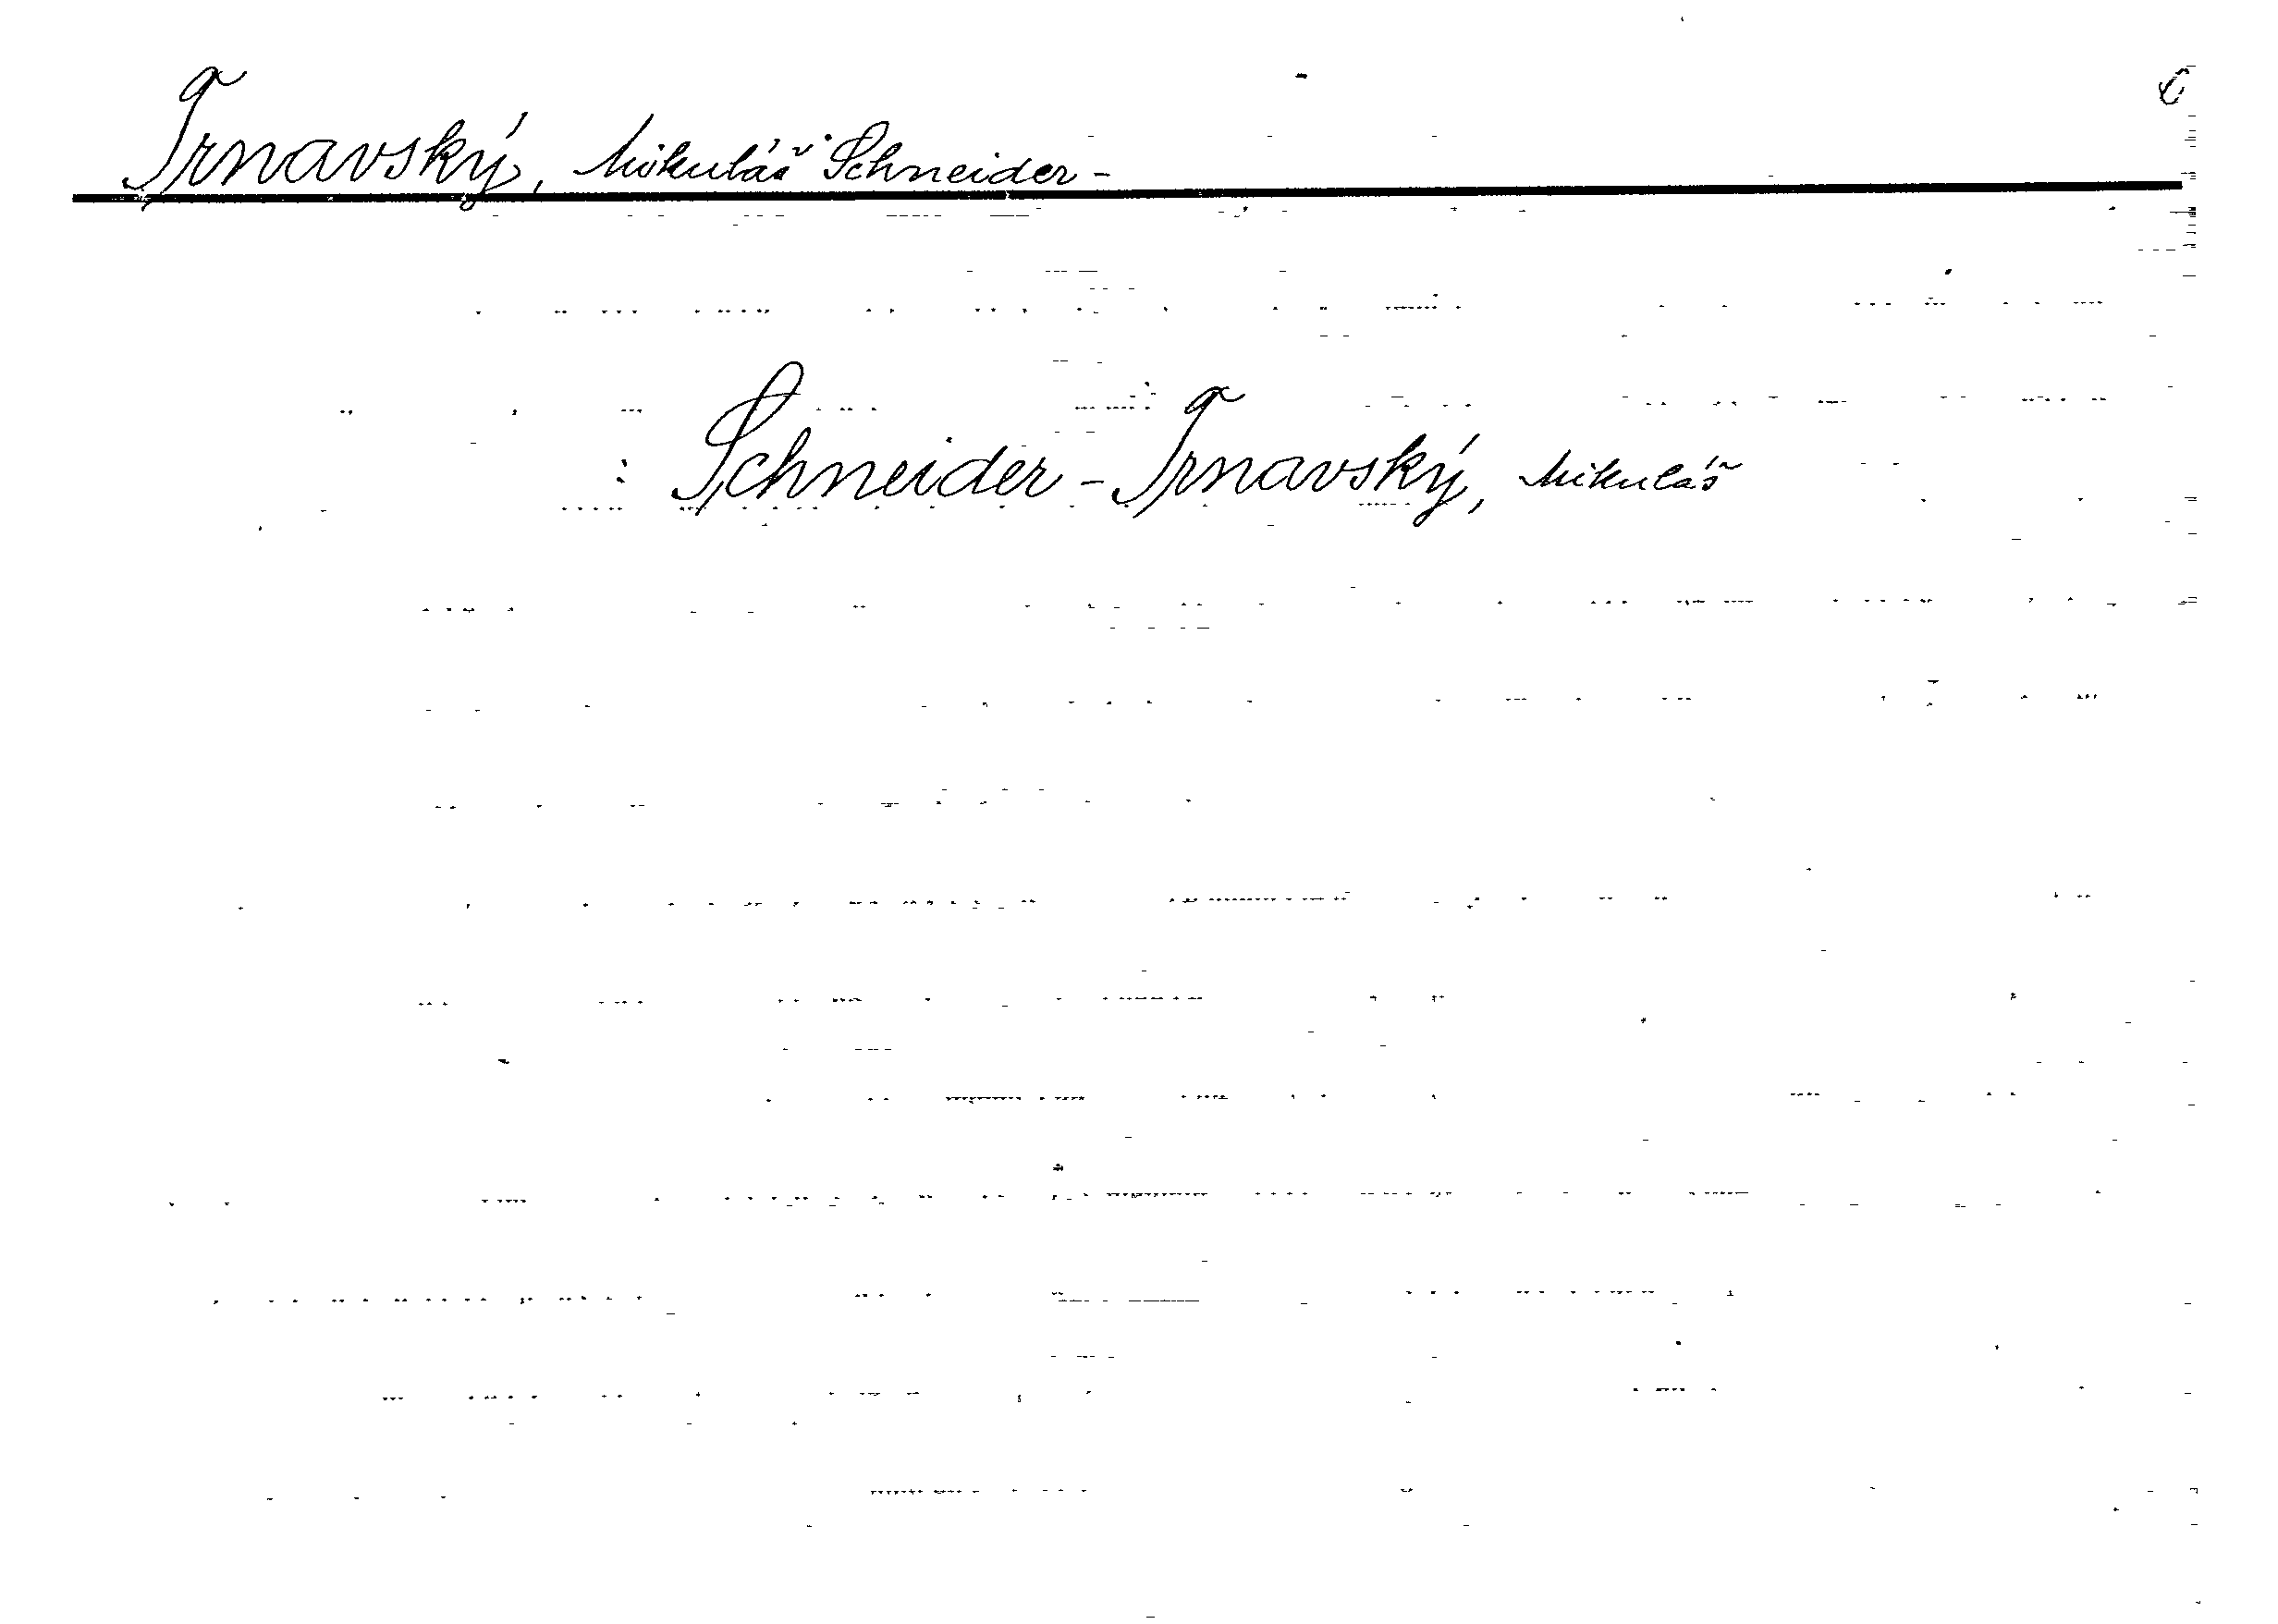 Trnavský, Mikuláš Schneider-
: Schneider-Trnavský, Mikuláš